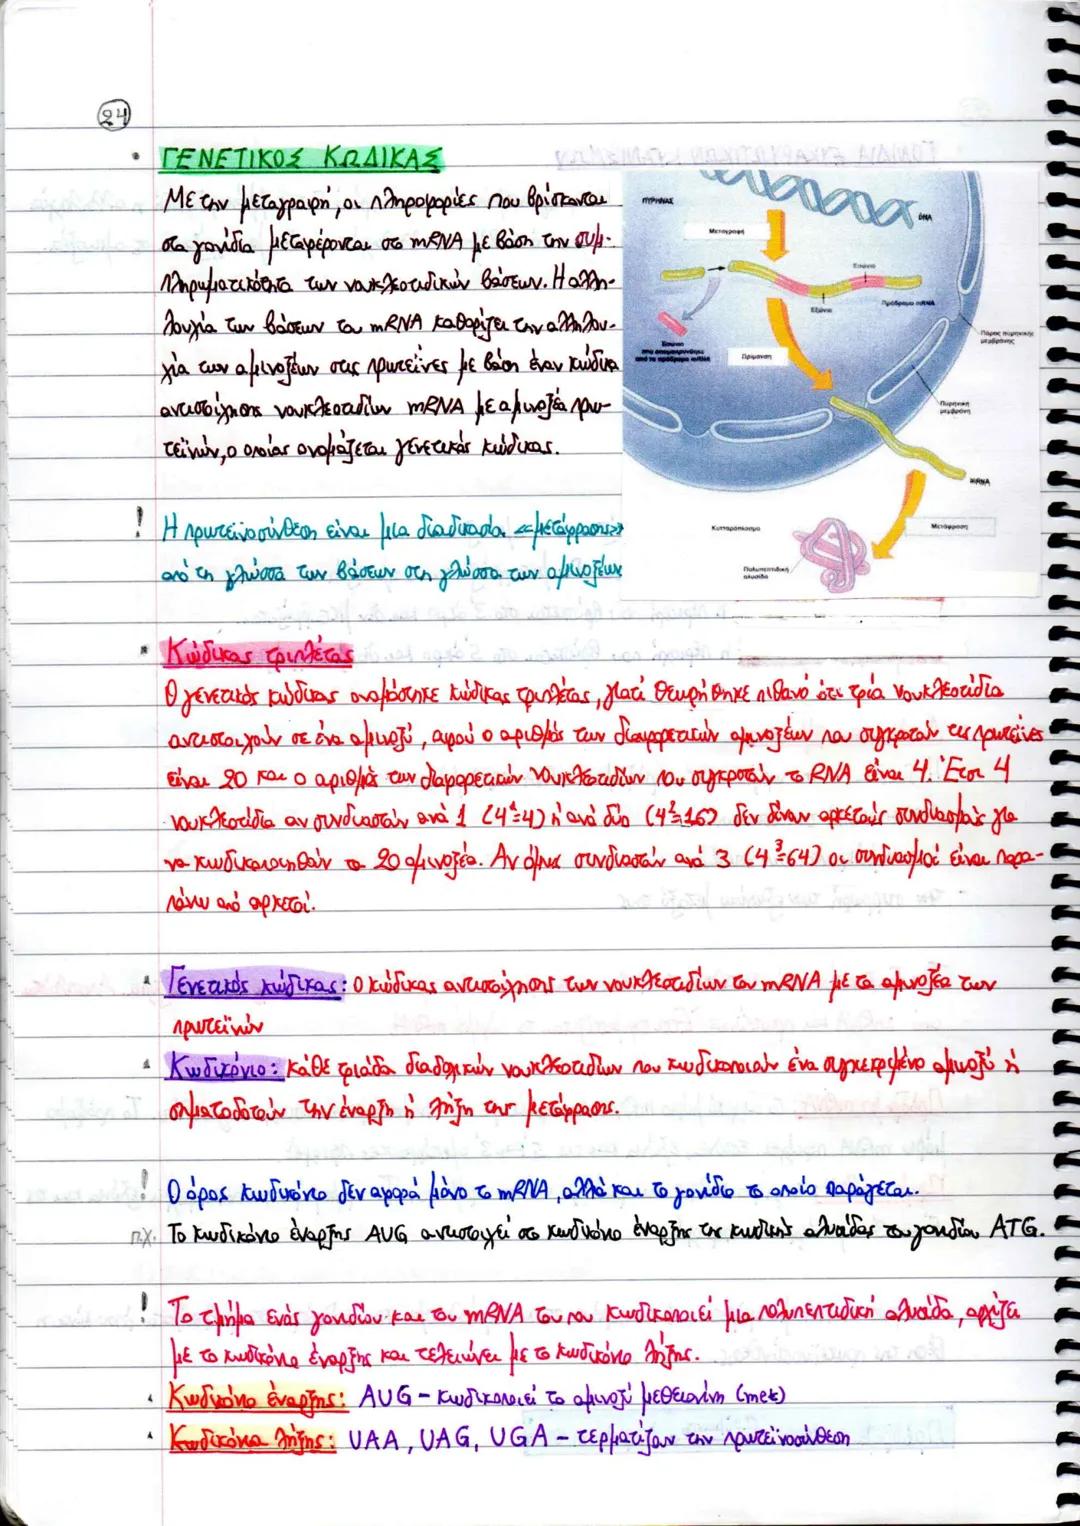 24
ΓΕΝΕΤΙΚΟΣ ΚΩΔΙΚΑΣ
Με την μεταγραφή, οι πληροφορίες που βρίσκονται
στα γονίδια μεταφέρονται στο mRNA με βάση την συμ-
πληρωματικότητα των νουκλεοτιδικών βάσεων. Η αλλη-
λουχία των βάσεων του mRNA καθορίζει την αλληλου-
χία των αμινοξέων στις πρωτεΐνες με βάση έναν κώδικα
αντιστοίχησης νουκλεοτιδίων mRNA με αμινοξέα πρω-
τεϊνών, ο οποίος ονομάζεται γενετικός κώδικας.
ΠΥΡΗΝΑΣ
DNA
Μεταγραφή
Εσώνιο
Πρόδρομο mRNA
Εξώνιο
Εσώνιο
που απομακρύνθηκε
από το πρόδρομο mRNA
Ωρίμανση
Πόρος πυρηνικής
μεμβράνης
Πυρηνική
μεμβράνη
mRNA
Κυτταρόπλασμα
Μετάφραση
Πολυπεπτιδική
αλυσίδα
! Η πρωτεϊνοσύνθεση είναι μια διαδικασία <<μετάφρασης>>
από τη γλώσσα των βάσεων στη γλώσσα των αμινοξέων
Κώδικας τριπλέτας
Ο γενετικός κώδικας ονομάστηκε κώδικας τριπλέτας, γιατί θεωρήθηκε πιθανό ότι τρία νουκλεοτίδια
αντιστοιχούν σε ένα αμινοξύ, αφού ο αριθμός των διαφορετικών αμινοξέων που συγκροτούν τις πρωτεΐνες
είναι 20 και ο αριθμός των διαφορετικών νουκλεοτιδίων που συγκροτούν το RNA είναι 4. Έτσι 4
νουκλεοτίδια αν συνδυαστούν ανά 1 (4¹=4) ή ανά δύο (4²=16) δεν δίνουν αρκετούς συνδυασμούς για
να κωδικοποιηθούν τα 20 αμινοξέα. Αν όμως συνδυαστούν ανά 3 (4³=64) οι συνδυασμοί είναι παρα-
πάνω από αρκετοί.
Γενετικός κώδικας: Ο κώδικας αντιστοίχησης των νουκλεοτιδίων του mRNA με τα αμινοξέα των
πρωτεϊνών
Κωδικόνιο: κάθε τριάδα διαδοχικών νουκλεοτιδίων που κωδικοποιούν ένα συγκεκριμένο αμινοξύ ή
σηματοδοτούν την έναρξη ή λήξη της μετάφρασης.
! Ο όρος κωδικόνιο δεν αφορά μόνο το mRNA, αλλά και το γονίδιο το οποίο παράγεται.
π.χ. Το κωδικόνιο έναρξης AUG αντιστοιχεί στο κωδικόνιο έναρξης της κωδικής αλυσίδας του γονιδίου ATG.
! Το τμήμα ενός γονιδίου και του mRNA του που κωδικοποιεί μια πολυπεπτιδική αλυσίδα, αρχίζει
με το κωδικόνιο έναρξης και τελειώνει με το κωδικόνιο λήξης.
Κωδικόνιο έναρξης: AUG - κωδικοποιεί το αμινοξύ μεθειονίνη (met)
Κωδικόνια λήξης: UAA, UAG, UGA - τερματίζουν την πρωτεϊνοσύνθεση